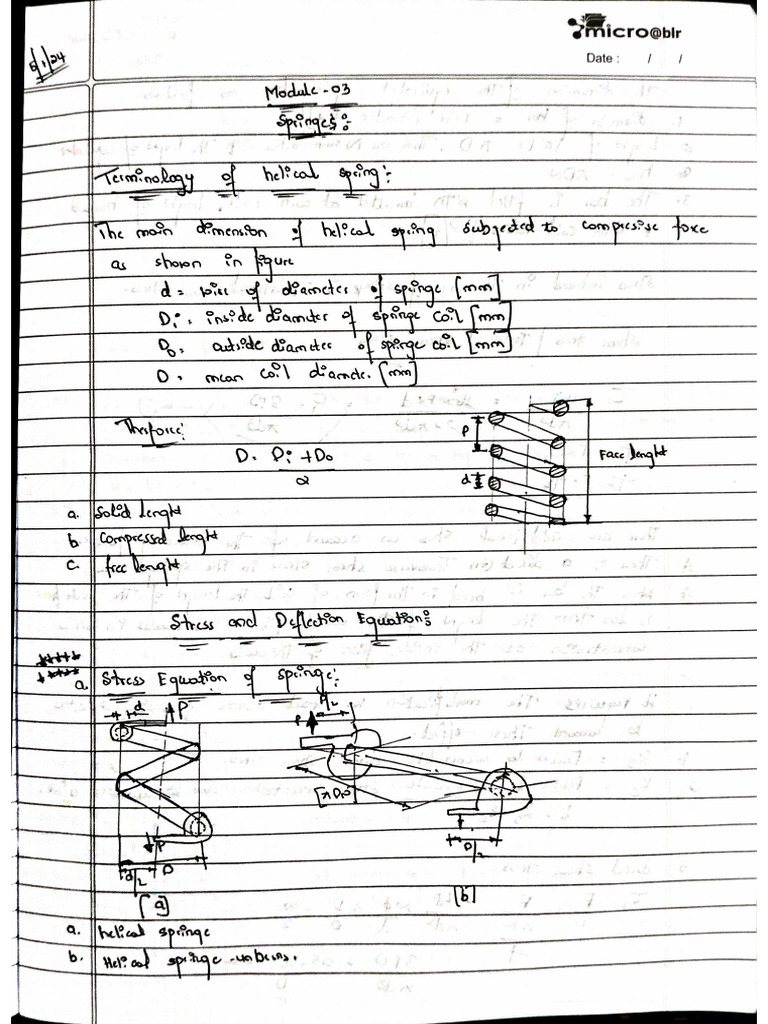 micro@blr
5/1/24
Date : / /
Module - 03
Springes:
Terminology of helical spring:
The main dimension of helical spring subjected to compresive force
as shown in figure
d = wire of diameter of springe [mm]
Di = inside diameter of springe coil [mm]
Do = outside diameter of springe coil [mm]
D = mean coil diameter [mm]
Therfore:
D = Di + Do
2
P
d
Free lenght
a. Solid lenght
b. Compressed lenght
c. free lenght
Stress and Deflection Equation:
a. Stress Equation of springe:
d
P
P
D/2
P
D
d/2
P
D/2
[a]
[b]
a. helical springe
b. Helical springe -unbens.